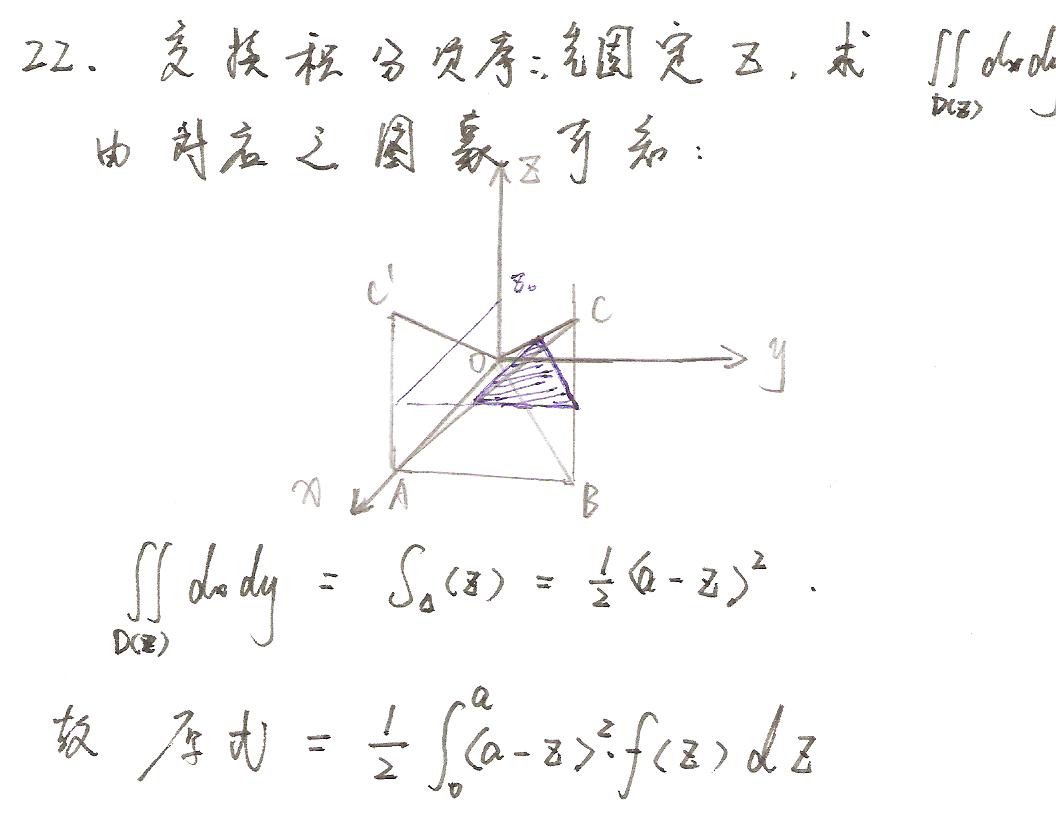 22. 交换积分顺序:先固定z,求 ∬dxdy
D(z)
由对应之图象可知:
z
z₀
C'
C
O
y
x
A
B
∬dxdy = S△(z) = 1/2 (a-z)².
D(z)
故 原式 = 1/2 ∫₀ᵃ(a-z)²·f(z)dz